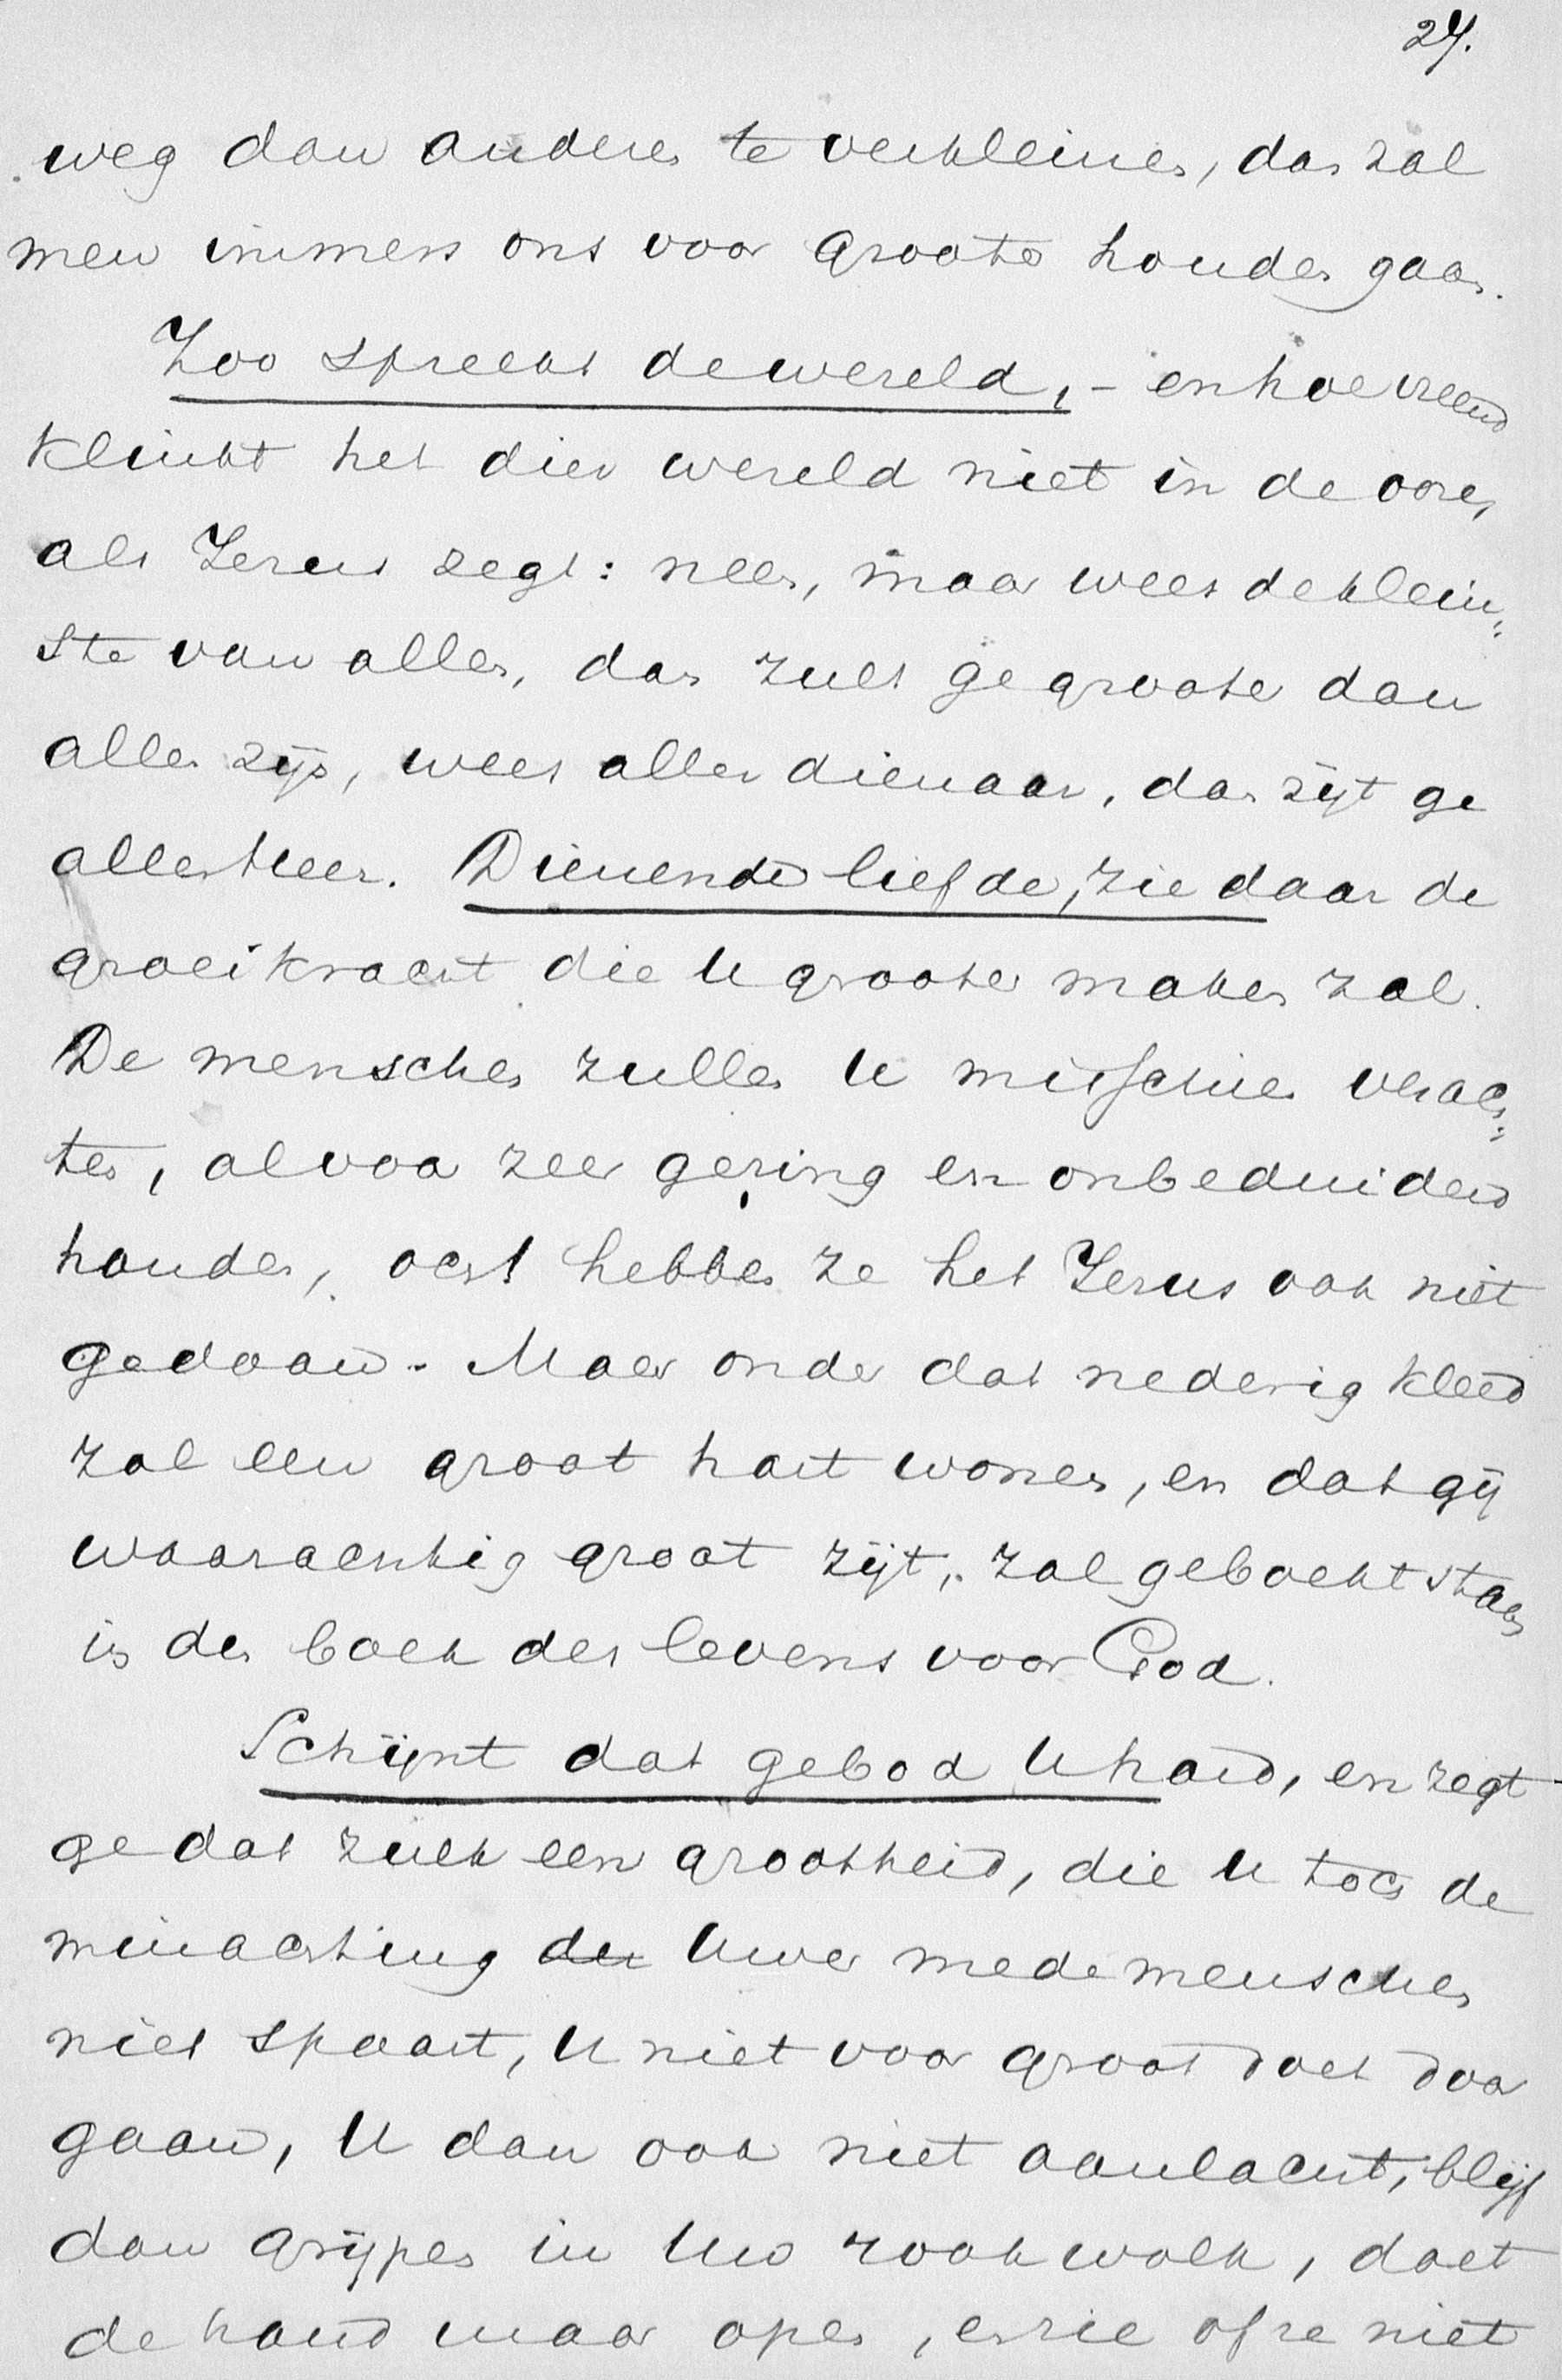 24.
weg dan anderen te verkleinen, dan zal
men immers ons voor grooter houden gaan.
Zoo spreekt de wereld, - en hoe vreemd
klinkt het dier wereld niet in de ooren,
als Jezus zegt: neen, maar wees de klein=
ste van allen, dan zult ge grooter dan
allen zijn, wees aller dienaar, dan zijt ge
aller Heer. Dienende liefde, zie daar de
groeikracht die U grooter maken zal.
De menschen zullen U misschien verach=
ten, al voor zeer gering en onbeduidend
houden, och hebben ze het Jezus ook niet
gedaan. Maar onder dat nederig kleed
zal een groot hart wonen, en dat gij
waarachtig groot zijt, zal geboekt staan
in den boek des levens voor God.
Schijnt dat gebod U hard, en zegt
ge dat zulk een grootheid, die U toch de
minachting der Uwer medemenschen
niet spaart, U niet voor groot doet door
gaan, U dan ook niet aanlacht, blijf
dan grijpen in Uw rookwolk, doet
de hand maar open, en zie of ze niet